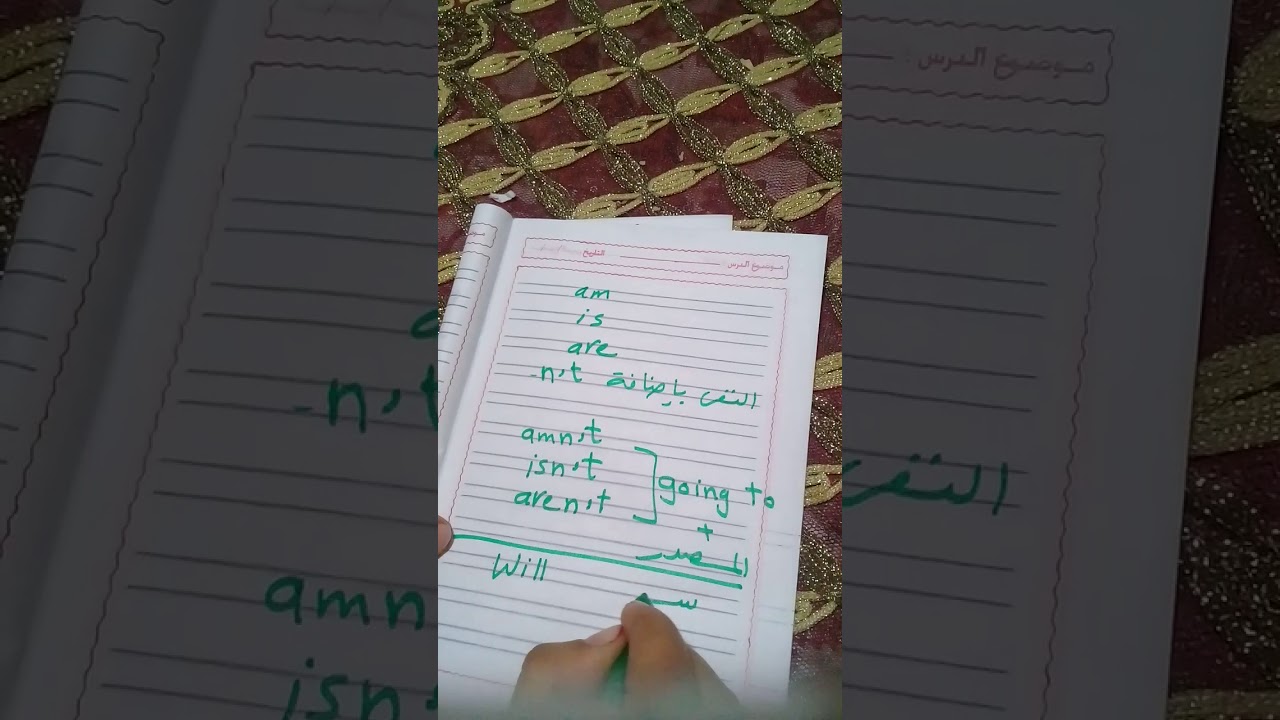 موضوع الدرس : التاريخ
am
is
are
النفى بإضافة -n't
amn't
isn't
aren't
going to
+
المصدر
Will
سـ